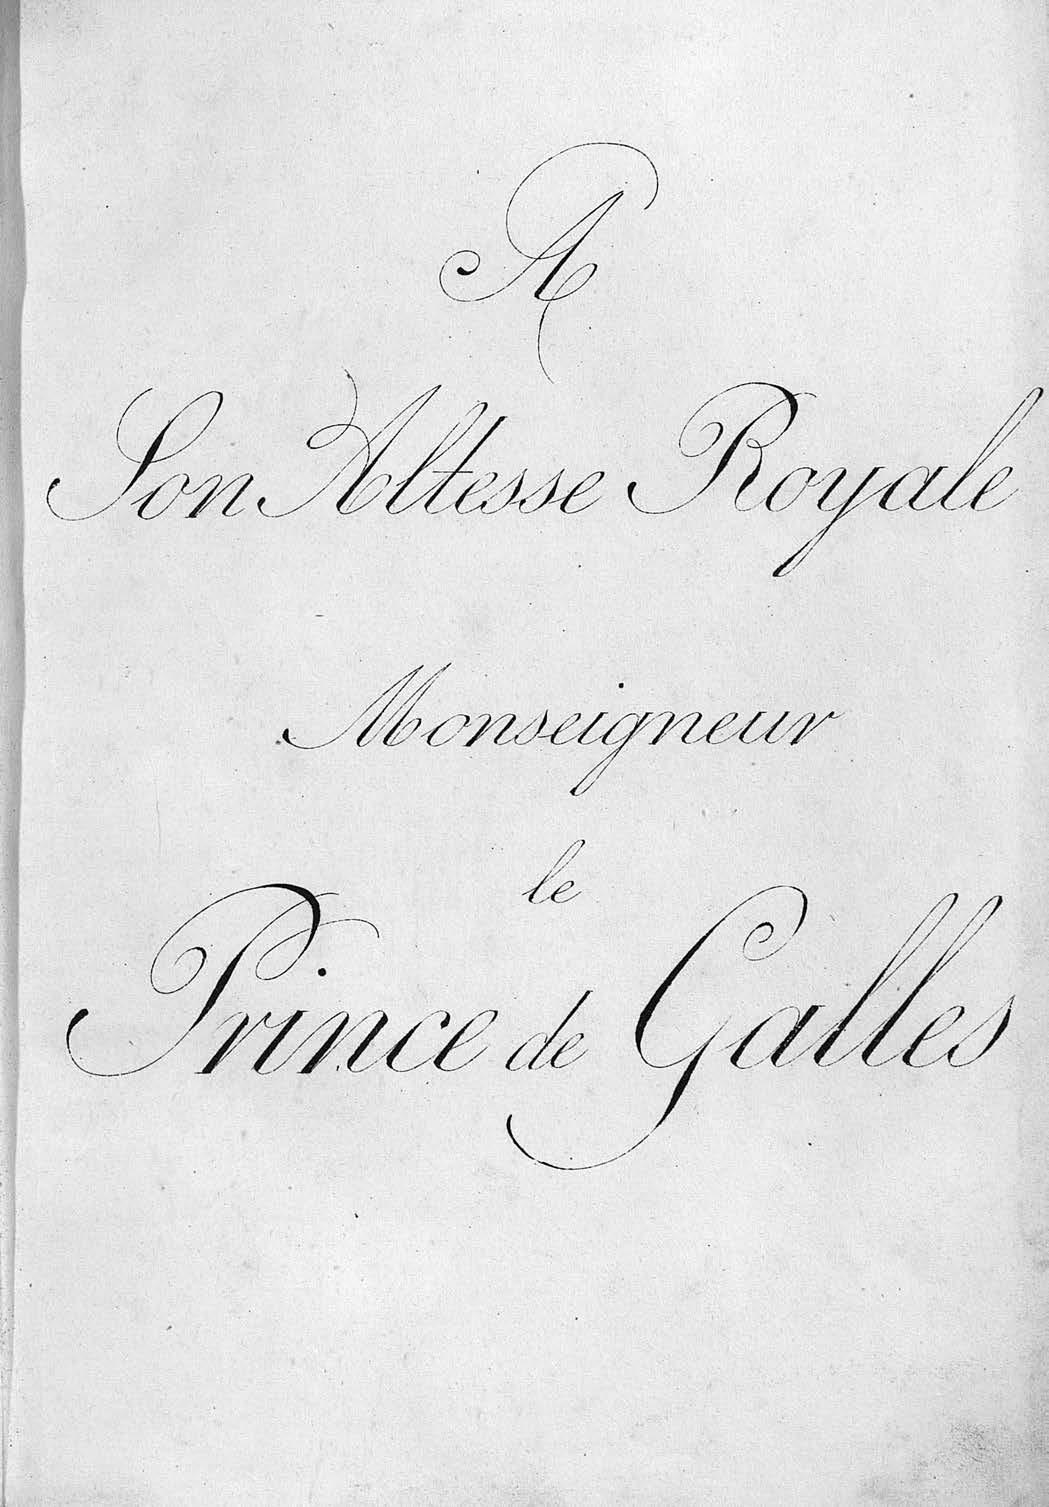 A
Son Altesse Royale
Monseigneur
le
Prince de Galles